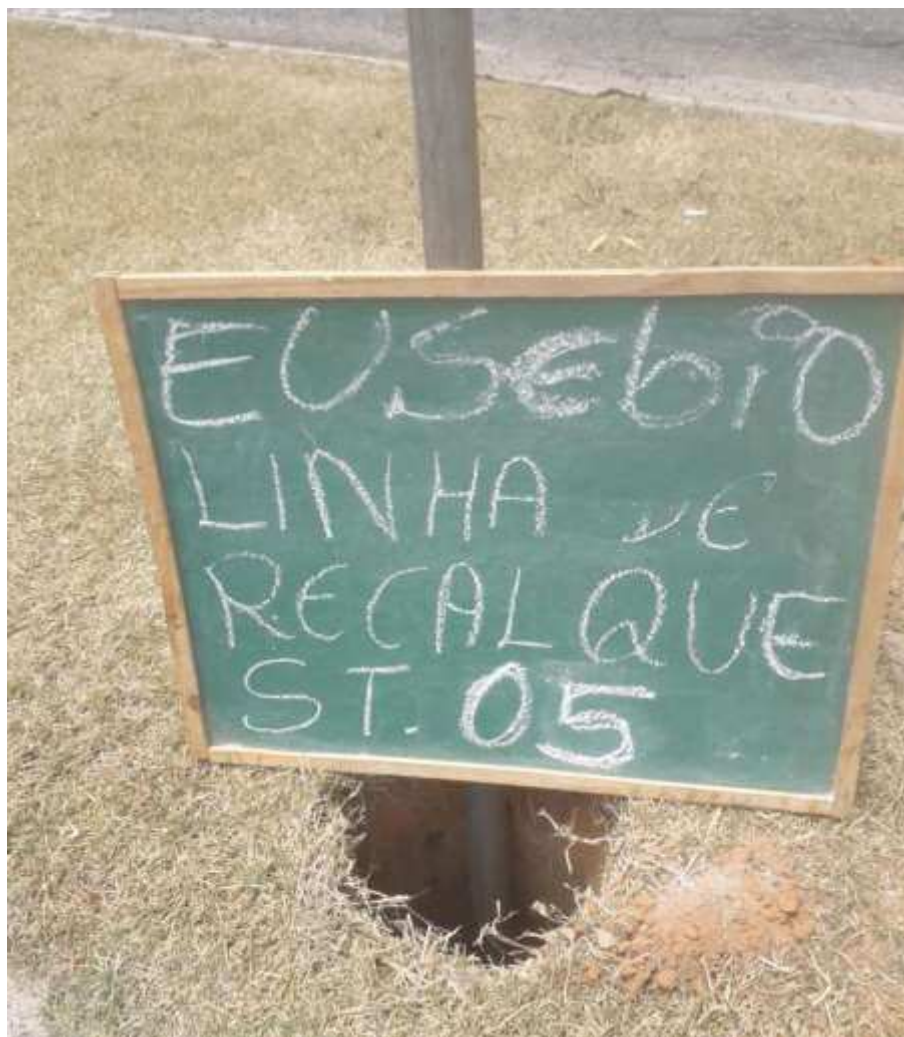 EUSEbiO
LINHA DE
RECALQUE
ST. 05